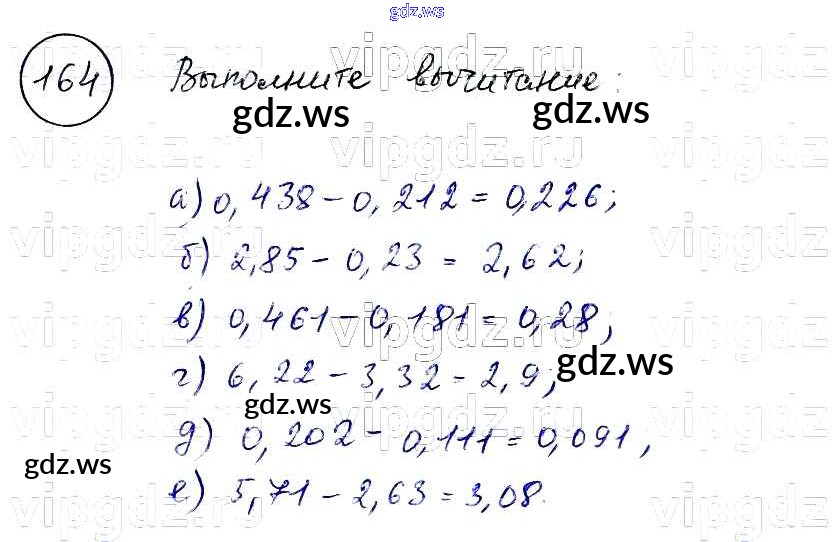 gdz.ws
164 Выполните вычитание:
gdz.ws gdz.ws
а) 0,438 - 0,212 = 0,226;
б) 2,85 - 0,23 = 2,62;
в) 0,461 - 0,181 = 0,28;
г) 6,22 - 3,32 = 2,9;
gdz.ws
gdz.ws
д) 0,202 - 0,111 = 0,091,
gdz.ws
е) 5,71 - 2,63 = 3,08.
vipgdz.ru